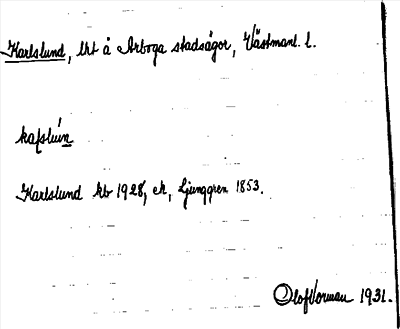 Karlslund, lht å Arboga stadsägor, Västmanl. l.
Karlslund kb 1928, ek, Ljunggren 1853.
Olof Vorman 1931.